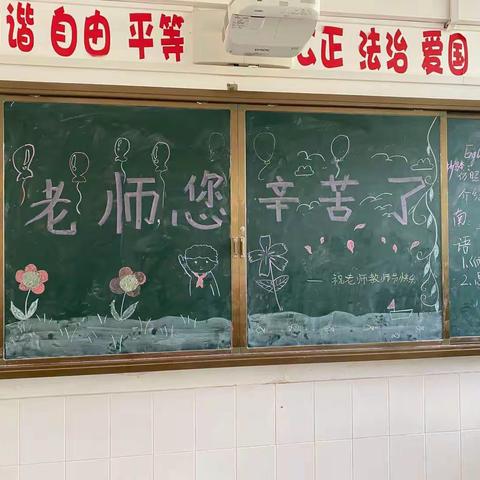 谐 自由 平等 正 法治 爱国
老师您 辛苦了
祝老师教师节快乐
Engl
介绍
南
语
1.
2.